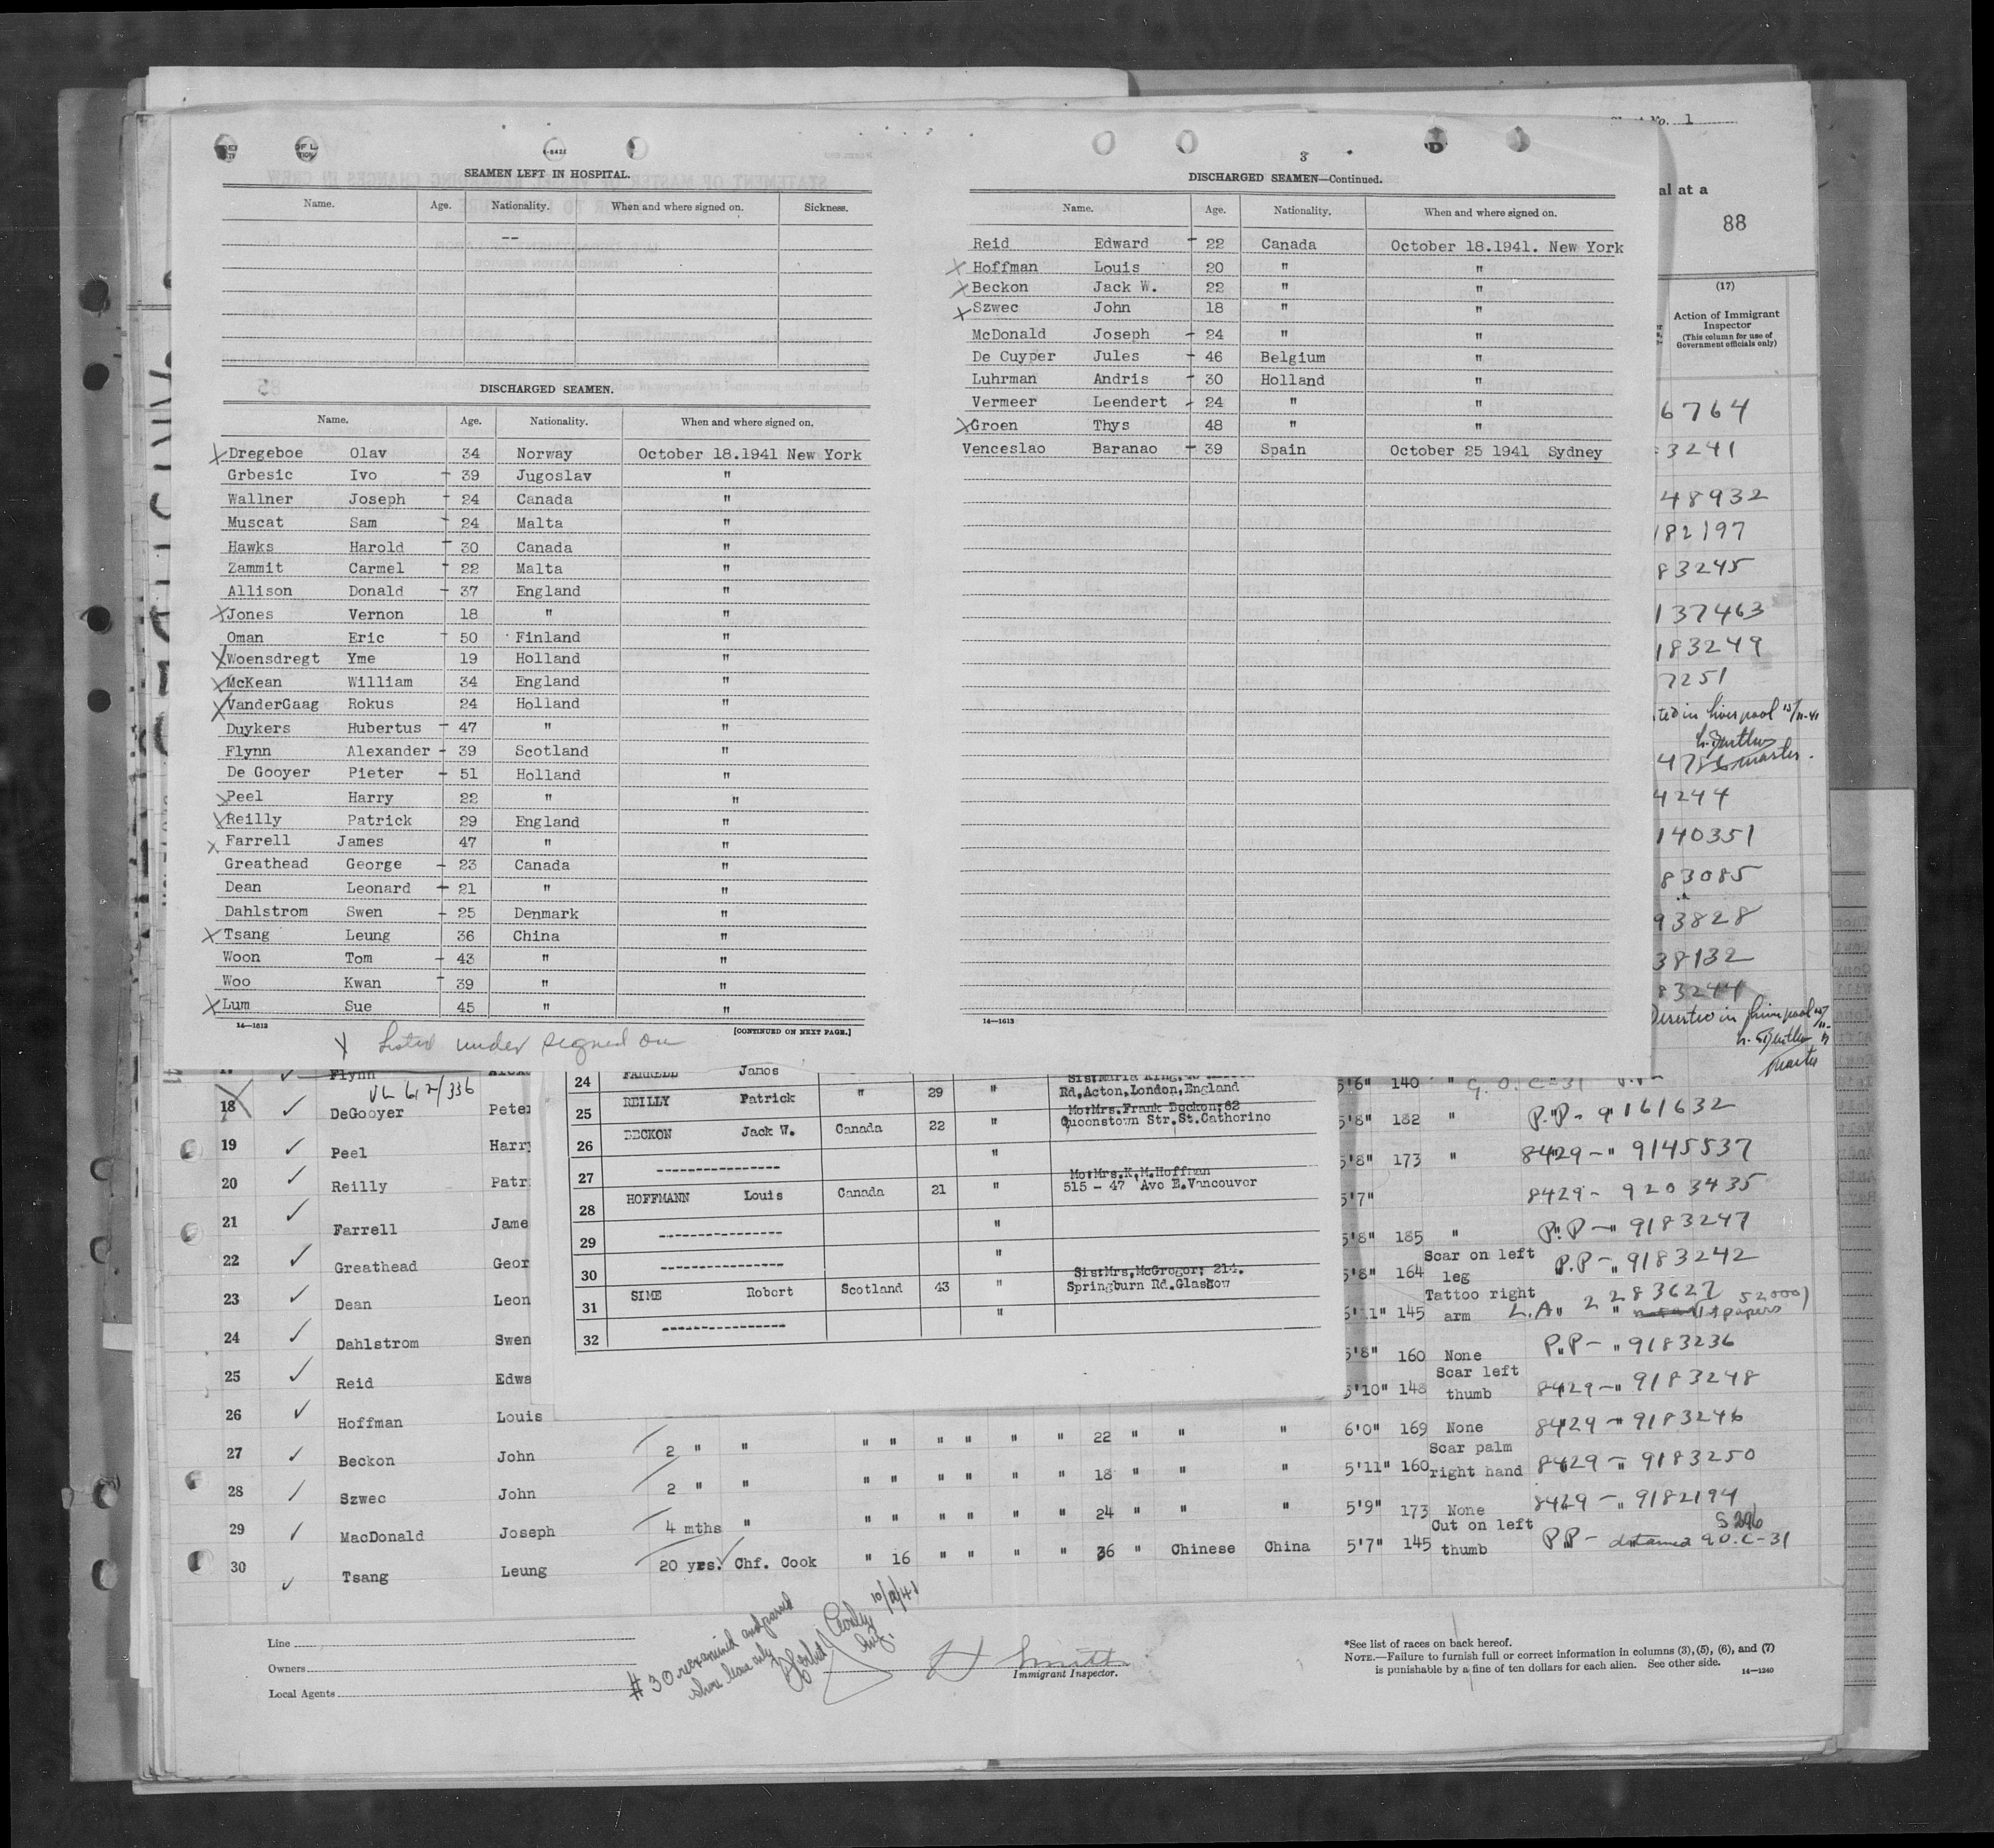 Sheet No. 1
al at a
88
SEAMEN LEFT IN HOSPITAL.
Name. Age. Nationality. When and where signed on. Sickness.
--
DISCHARGED SEAMEN.
Name. Age. Nationality. When and where signed on.
X Dregeboe Olav 34 Norway October 18.1941 New York
Grbesic Ivo - 39 Jugoslav "
Wallner Joseph - 24 Canada "
Muscat Sam - 24 Malta "
Hawks Harold - 30 Canada "
Zammit Carmel - 22 Malta "
Allison Donald - 37 England "
X Jones Vernon 18 " "
Oman Eric - 50 Finland "
X Woensdregt Yme 19 Holland "
X McKean William 34 England "
X VanderGaag Rokus 24 Holland "
Duykers Hubertus - 47 " "
Flynn Alexander - 39 Scotland "
De Gooyer Pieter - 51 Holland "
X Peel Harry 22 " "
X Reilly Patrick 29 England "
X Farrell James 47 " "
Greathead George - 23 Canada "
Dean Leonard - 21 " "
Dahlstrom Swen - 25 Denmark "
X Tsang Leung 36 China "
Woon Tom - 43 " "
Woo Kwan - 39 " "
X Lum Sue 45 " "
14—1613 [CONTINUED ON NEXT PAGE.]
X Listed under signed on
3
DISCHARGED SEAMEN—Continued.
Name. Age. Nationality. When and where signed on.
Reid Edward - 22 Canada October 18.1941. New York
X Hoffman Louis 20 " "
X Beckon Jack W. 22 " "
X Szwec John 18 " "
McDonald Joseph - 24 " "
De Cuyper Jules - 46 Belgium "
Luhrman Andris - 30 Holland "
Vermeer Leendert - 24 " "
X Groen Thys 48 " "
Venceslao Baranao - 39 Spain October 25 1941 Sydney
14—1613
(17)
Action of Immigrant
Inspector
(This column for use of
Government officials only)
6764
3241
48932
182197
83245
137463
183249
7251
ted in Liverpool 15/11-41
master.
4244
140351
83085
93828
38132
83244
Deserted in Liverpool
Master
Flynn
VL 6,2/336
18 ✓ DeGooyer Peter
19 ✓ Peel Harry
20 ✓ Reilly Patri
21 ✓ Farrell Jame
22 ✓ Greathead Geor
23 ✓ Dean Leon
24 ✓ Dahlstrom Swen
25 ✓ Reid Edwa
26 ✓ Hoffman Louis
27 ✓ Beckon John 2 " " " " " " " " 22 " " "
28 ✓ Szwec John 2 " " " " " " " " 18 " " "
29 ✓ MacDonald Joseph 4 mths " " " " " " " 24 " " "
30 ✓ Tsang Leung 20 yrs. Chf. Cook " 16 " " " " 36 " Chinese China
24 FARRELL James
Rd.Acton,London,England
25 REILLY Patrick " 29 "
Mo:Mrs.Frank Beckon;62
Queenstown Str.St.Catherine
26 BECKON Jack W. Canada 22 "
27 ---------------- "
Mo:Mrs.K.M.Hoffman
515 - 47 Ave E.Vancouver
28 HOFFMANN Louis Canada 21 "
29 ---------------- "
30 ---------------- "
Sis:Mrs.McGregor; 214.
Springburn Rd.Glasgow
31 SIME Robert Scotland 43 "
32 ---------------- "
5'6" 140 " 9. O. C-31
5'8" 182 " P.P - 9161632
5'8" 173 " 8429 - " 9145537
5'7" 8429 - 9203435
5'8" 185 " P.P - " 9183247
5'8" 164 Scar on left leg P.P - " 9183242
5'11" 145 Tattoo right arm L.A " 2 283627 52000)
papers
5'8" 160 None P.P - " 9183236
5'10" 148 Scar left thumb 8429 - " 9183248
6'0" 169 None 8429 - " 9183246
5'11" 160 Scar palm right hand 8429 - " 9183250
5'9" 173 None 8429 - " 9182194
5'7" 145 Cut on left thumb P.P - detained 9.O.C-31
S 296
Line
Owners
Local Agents
#30 reexamined and passed
shore leave only
10/12/41
Insp.
H Smith
Immigrant Inspector.
*See list of races on back hereof.
NOTE.—Failure to furnish full or correct information in columns (3), (5), (6), and (7)
is punishable by a fine of ten dollars for each alien. See other side. 14—1240